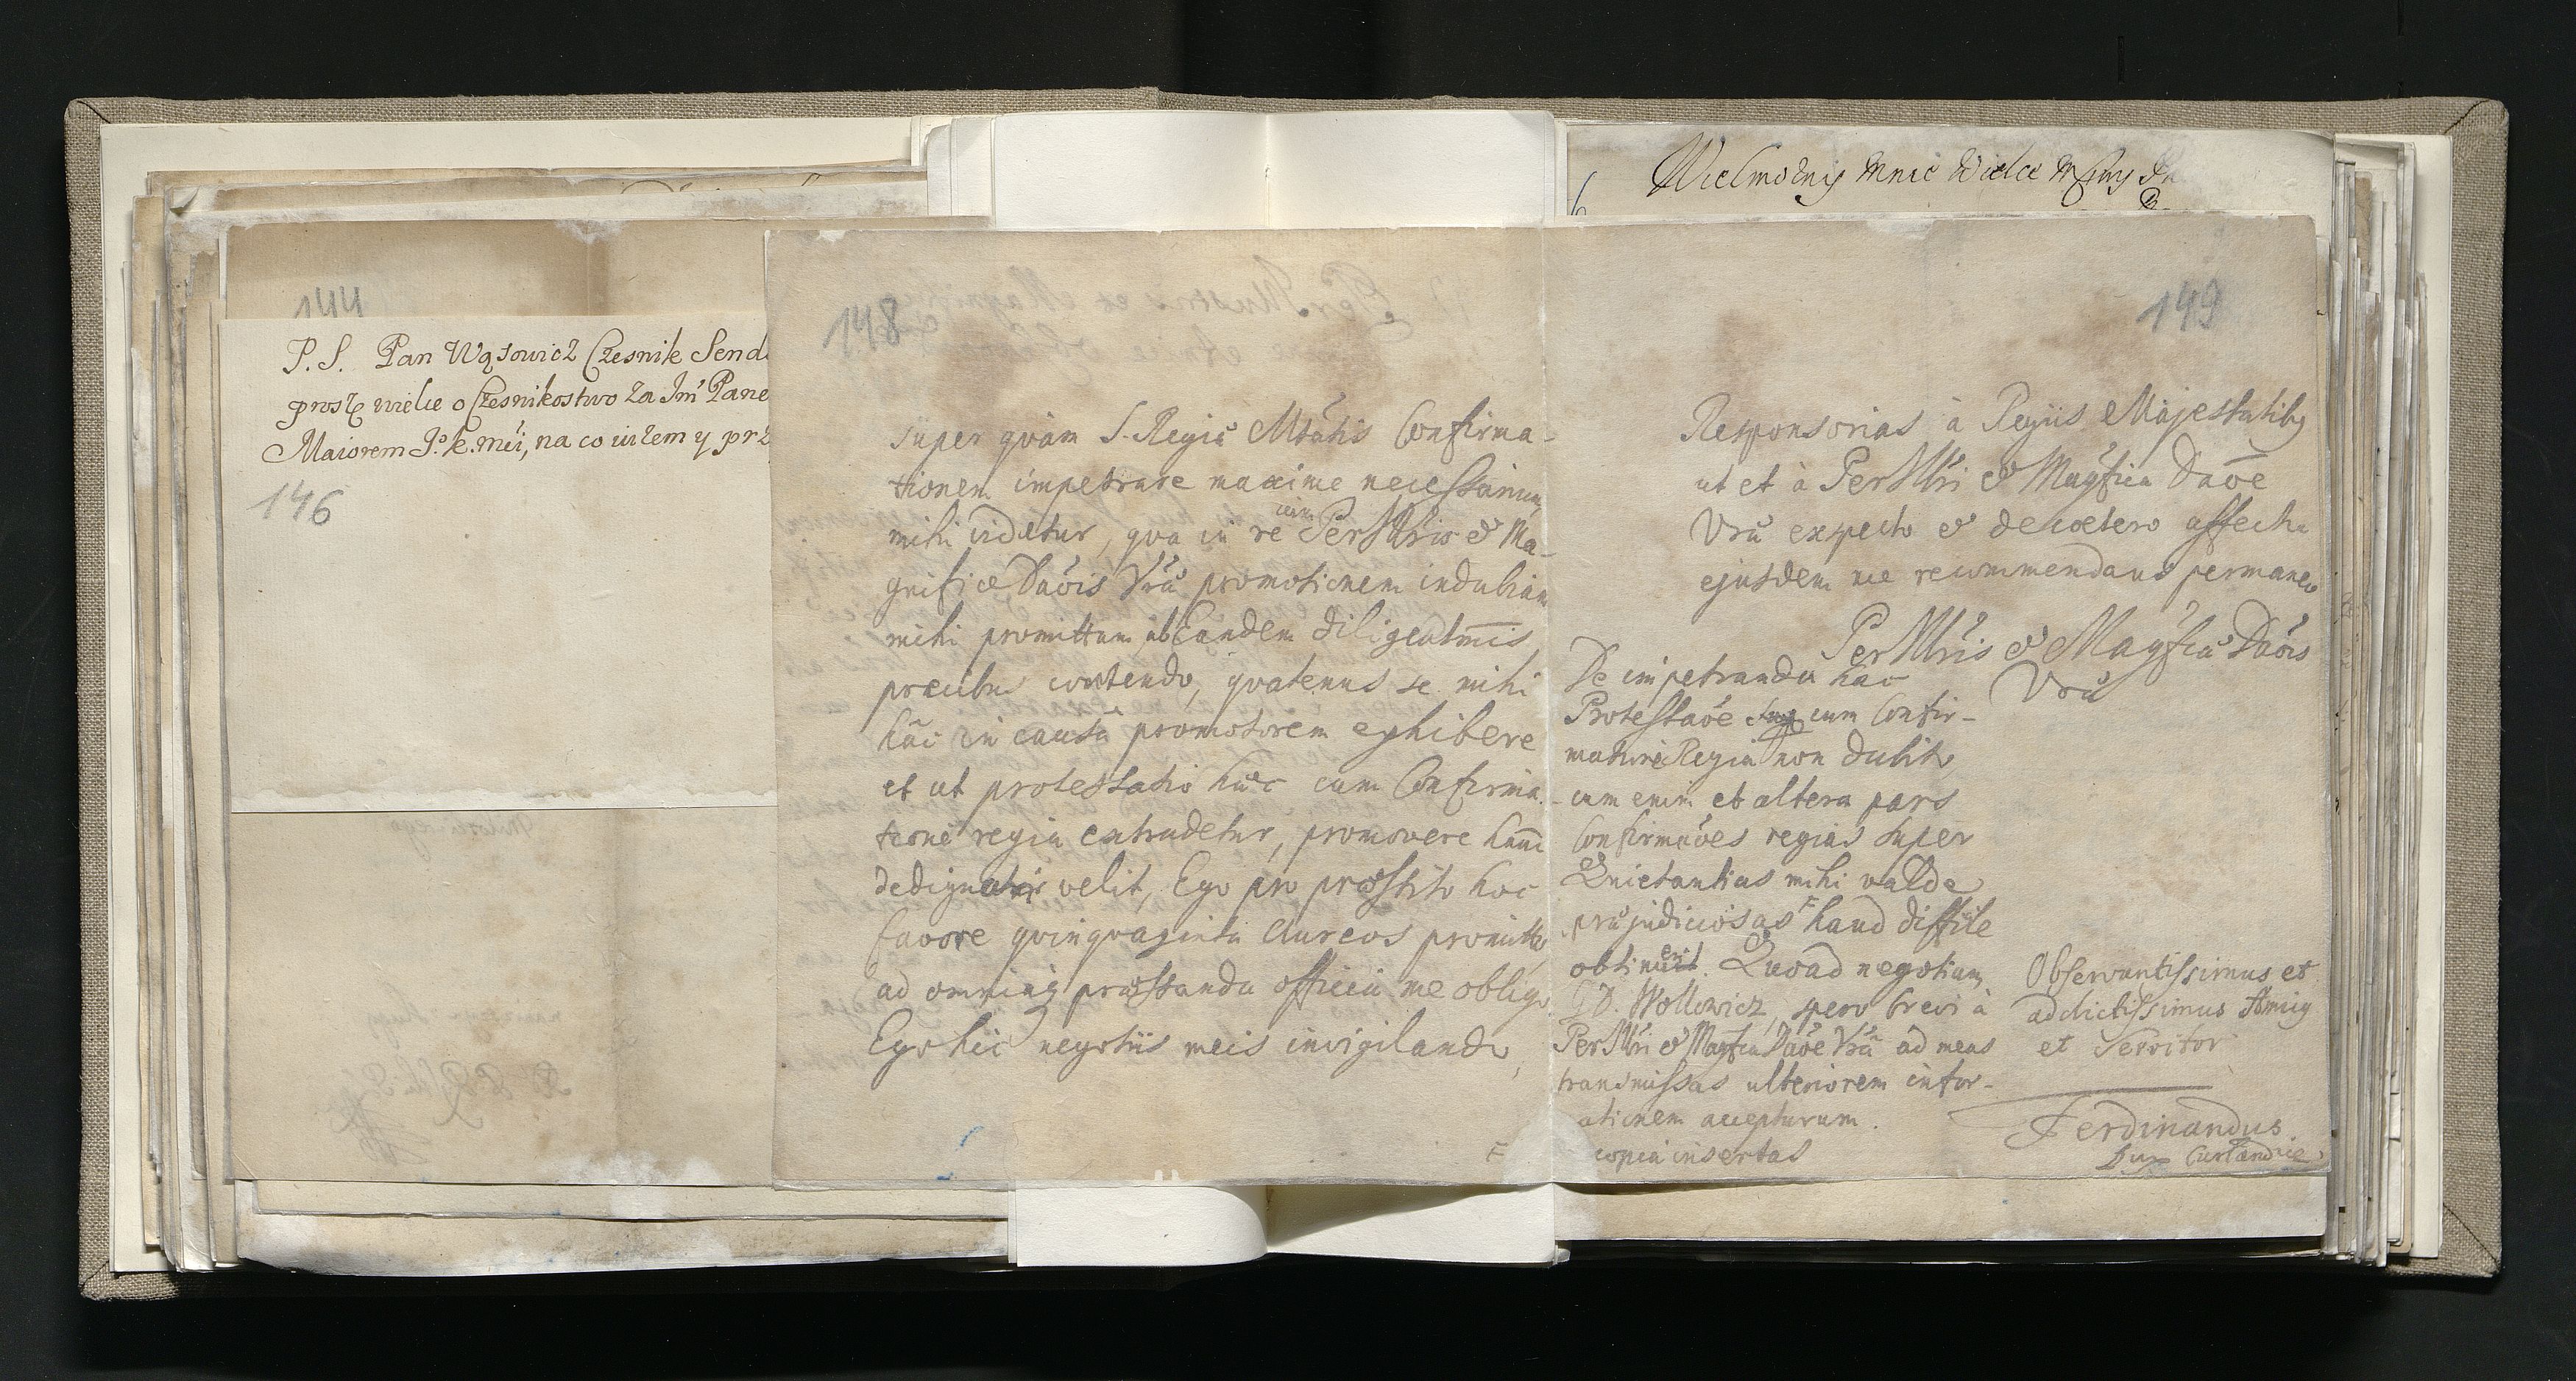 144
P. S. Pan Wąsowicz Czesnik Send
proszę wielce o Czesnikostwo za Im Pane
Maiorem J. k. mći, na co iużem y prz
146
148
super qvàm S. Regiæ Mtătis Confirma-
tionem impetrare maxime necessarium
mihi videtur, qva in re cum PerIllris & Ma-
gnificæ Dăois Vræ promotionem indubiam
mihi promittam, ab Eandem diligentmis
precibus contendo, qvatenus se mihi
hâc in causâ promotorem exhibere
et ut protestatio hæc cum Confirma-
tione regia extradetur, promovere haud
dedignatur velit, Ego pro præstito hoc
favore qvinqvaginta Aureos promitto,
ad omnia præstanda officia me obligo
Ego hic negotiis meis invigilando,
F
Wielmożny Mnie Wielce Mćiwy
149
Responsorias à Regiis Majestatibq
ut et à PerIllri & Magfica Daōe
Vrâ expecto & de cœtero affectui
ejusdem me recommendans permaneo
PerIllris & Magficæ Dăois
Vræ
De impetranda hac
Protestaōe cum Confir-
matione Regia non dubito,
cum enim et altera pars
Confirmaōes regias super
Quietantias mihi valde
præjudiciosas F haud difficile
obtinuerit. Quoad negotium
G. D. Wollowicz, spero brevi à
PerIllri & Magfica Dāoe Vrâ ad meas
transmissas ulteriorem infor-
ationem accepturum.
copia insertas
Observantissimus et
addictissimus Amicq
et Servitor
Ferdinandus
Dux Curlandiæ